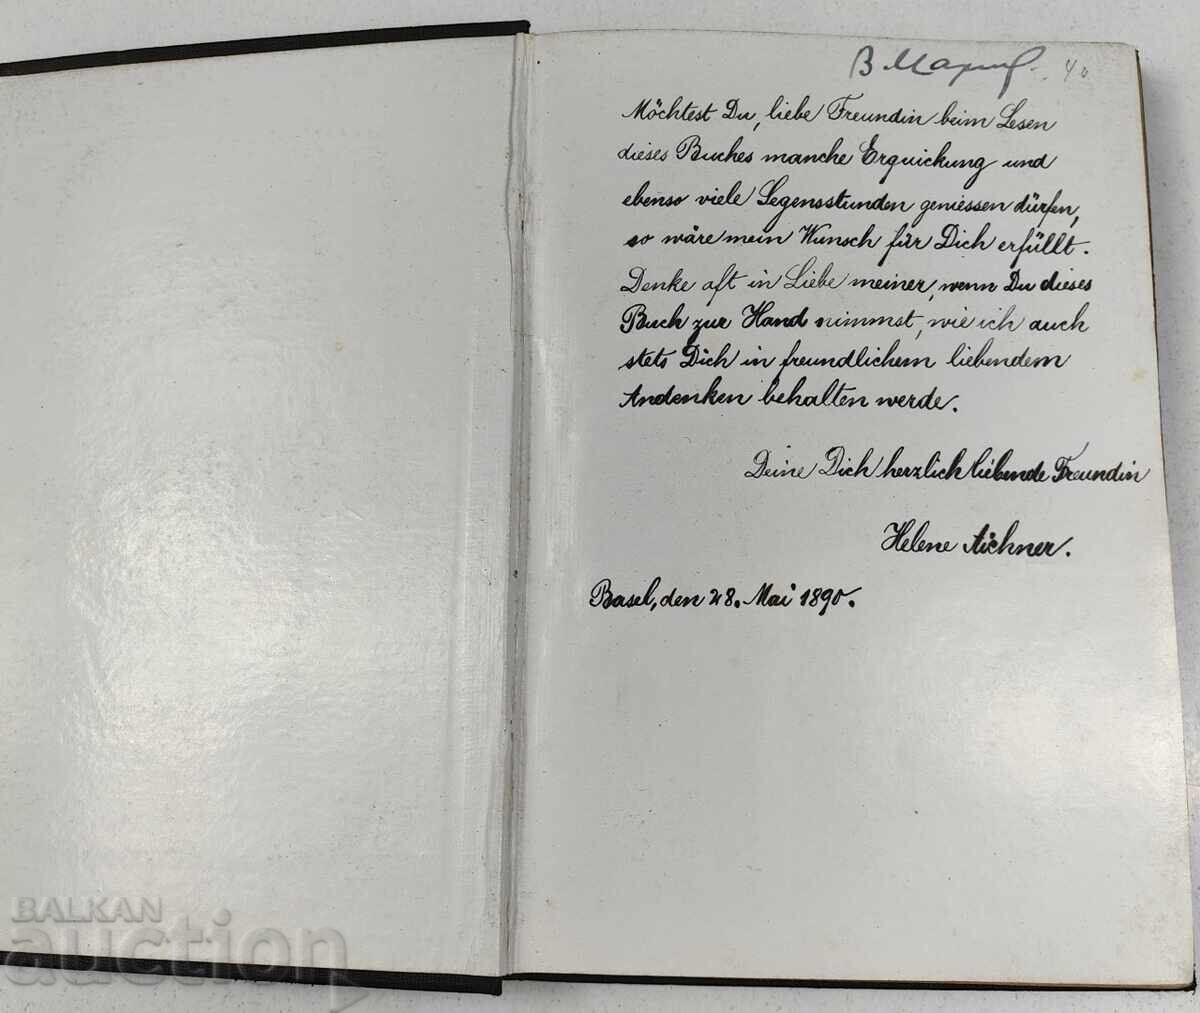 В. Марин 40
Möchtest Du, liebe Freundin beim Lesen
dieses Buches manche Erquickung und
ebenso viele Segensstunden geniessen dürfen,
so wäre mein Wunsch für Dich erfüllt.
Denke oft in Liebe meiner, wenn Du dieses
Buch zur Hand nimmst, wie ich auch
stets Dich in freundlichem liebendem
Andenken behalten werde.
Deine Dich herzlich liebende Freundin
Helene Aichner.
Basel, den 28. Mai 1890.
BALKAN
auction